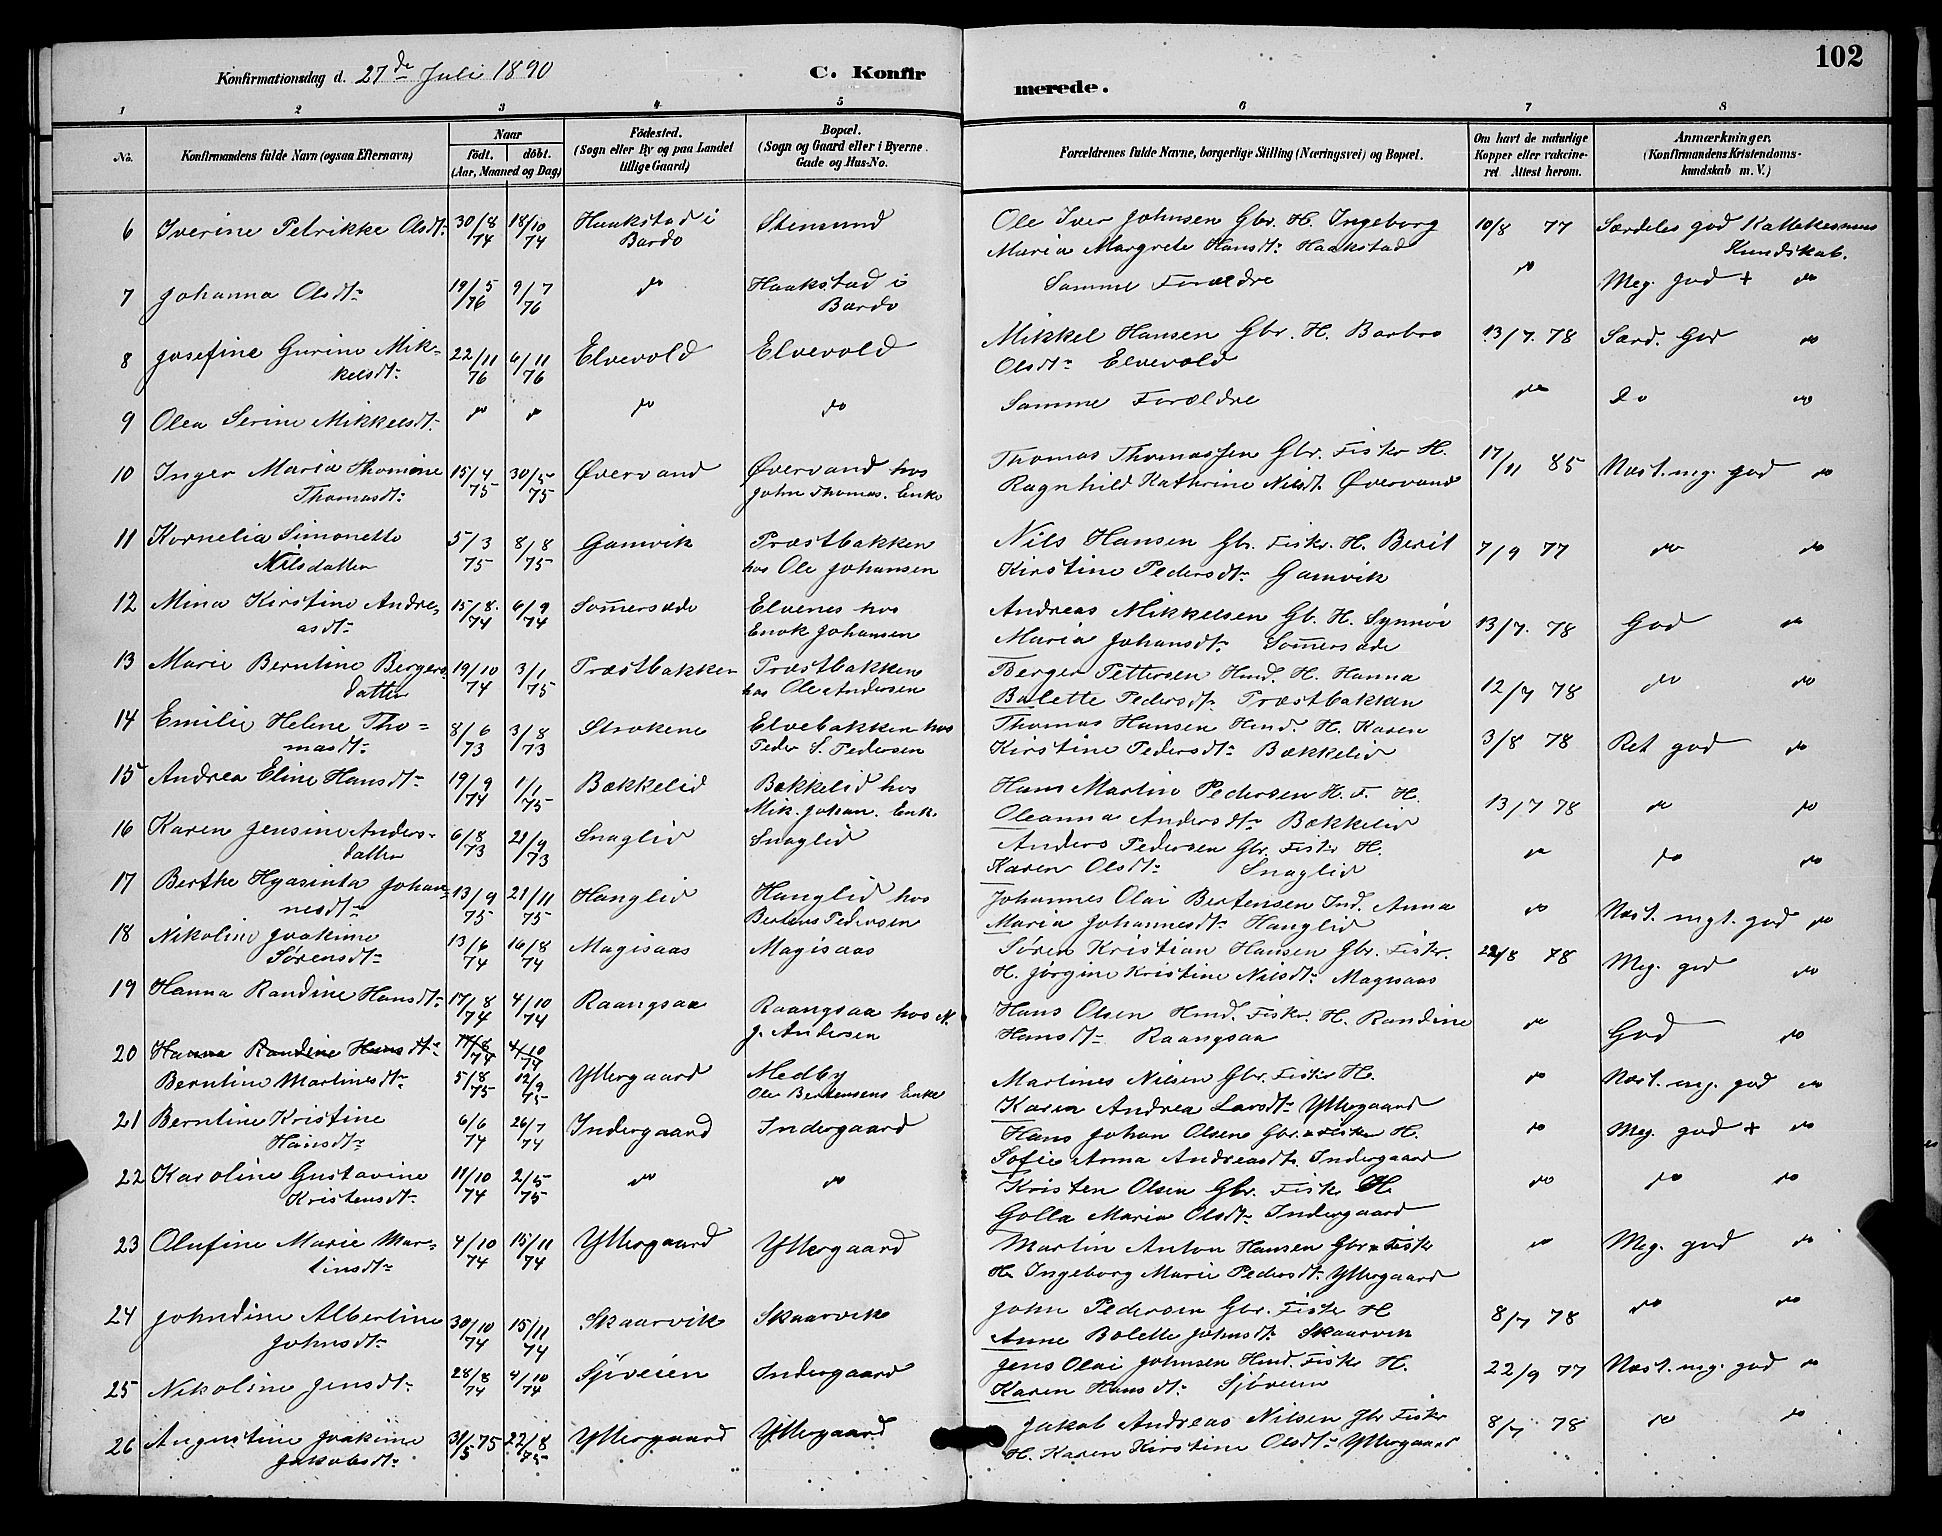 102
Konfirmationsdag d. 27de Juli 1890
C. Konfirmerede.
1 2 3 4 5 6 7 8
No.
Konfirmandens fulde Navn (ogsaa Efternavn)
Naar
födt. döbt.
(Aar, Maaned og Dag)
Födested.
(Sogn eller By og paa Landet
tillige Gaard)
Bopæl.
(Sogn og Gaard eller i Byerne
Gade og Hus-No.
Forældrenes fulde Navne, borgerlige Stilling (Næringsvei) og Bopæl.
Om havt de naturlige
Kopper eller vakcine-
ret Attest herom.
Anmærkninger.
(Konfirmandens Kristendoms-
kundskab m. V.)
6 Iverine Petrikke Olsdt. 30/8 74 18/10 74 Haakstad i Bardo Stensund Ole Iver Johnsen Gbr. H. Ingeborg 10/8 77 Særdeles god
Maria Margrete Hansdt. Haakstad Kundskab.
7 Johanna Olsdt. 19/5 76 9/7 76 do Haakstad i Bardo Samme Forældre do Meg. god + do
8 Josefine Gurine Mik- 22/11 76 6/11 76 Elvevold Elvevold Mikkel Hansen Gbr. H. Barbro 13/7. 78 Særd. God do
kelsdt. Olsdt. Elvevold
9 Olea Serine Mikkelsdt. do do do do Samme Forældre do Do do
10 Inger Maria Thomine 15/4 75 30/5 75 Øvervand Øvervand hos Thomas Thomassen Gbr. Fisker H. 17/11 85 Næst. mg. god do
Thomasdt. John Thomas. Enke Ragnhild Kathrine Nilsdt. Øvervand
11 Kornelia Simonette 5/3 75 8/8 75 Gamvik Præstbakken Nils Hansen Gbr. Fisker. H. Berit 7/9 77 do do
Nilsdatter hos Ole Johansen Kirstine Pedersdt. Gamvik
12 Mina Kirstine Andre- 15/8. 74 6/9 74 Sommersæde Elvenes hos Andreas Mikkelsen Gb. H. Synnöi 13/7. 78 God do
asdt. Enok Johansen Maria Johansdt. Sommersæde
13 Marie Berntine Bergers 19/10 74 3/1 75 Præstbakken Præstbakken Berger Pettersen Hmd. H. Hanna 12/7 78 do do
datter hos Ole Andersen Bolette Pedersdt. Præstbakken
14 Emilie Helene Tho- 8/6 73 3/8 73 Strokene Elvebakken hos Thomas Hansen Hmd. H. Karen 3/8 78 Ret god do
masdt. Peder S. Pedersen Kirstine Pedersdt. Bækkelid
15 Andrea Eline Hansdt. 19/9 74 1/1 75 Bækkelid Bækkelid hos Hans Martin Pedersen H. F. H. 13/7 78 do do
Mik. Johan. Enk. Oleanna Andersdt. Bækkelid
16 Karen Jensine Anders- 6/8 73 21/9 73 Snaglid Snaglid Anders Pedersen Gbr Fisker H. do do do
datter Karen Olsdt. Snaglid
17 Berthe Hyasinta Johan- 13/9 75 21/11 75 Hanglid Hanglid hos Johannes Olai Bertensen Ind. Anna do Næst. mgt. god do
nesdt. Pedersen Maria Johannesdt. Hanglid
18 Nikoline Joakime 13/6 74 16/8 74 Magisaas Magisaas Søren Kristian Hansen Gbr. Fisker. 22/8 78 Meg. god do
Sørensdt. H. Jörgine Kristine Nilsdt. Magisaas
19 Hanna Randine Hansdt. 17/8 74 4/10 74 Raangsaa Raangsaa hos N. Hans Olsen Hmd. Fisker. H. Randine do God do
J. Andersen Hansdt. Raangsaa
20 Hanna Randine Hansdt. 17/8 74 4/10 74
Berntine Martinesdt. 5/8 75 12/9 75 Yttergaard Medby Martines Nilsen Gbr. Fisker H. do Næst. mg. god do
Ole Bertensens Enke Karen Andrea Larsdt. Yttergaard
21 Berntine Kristine 6/6 74 26/7 74 Indergaard Indergaard Hans Johan Olsen Gbr. Fisker H. do Meg. god + do
Hansdt. Sofie Anna Andreasdt. Indergaard
22 Karoline Gustavine 11/10 74 2/5 75 do do Kristen Olsen Gbr. Fisk. H. do do do
Kristensdt. Golla Maria Olsdt. Indergaard
23 Olufine Marie Mar- 4/10 74 15/11 74 Yttergaard Yttergaard Martin Anton Hansen Gbr Fisker do Meg. god do
tinsdt. H. Ingeborg Marie Pedersdt. Yttergaard
24 Johndine Albertine 30/10 74 15/11 74 Skaarvik Skaarvik John Pedersen Gbr. Fisker H 8/7 78 do do
Johnsdt. Anne Bolette Johnsdt. Skaarvik
25 Nikoline Jensdt. 28/8 74 4/10 74 Sjöveien Indergaard Jens Olai Johnsen Hmd. Fisker H. 22/9 77 Næst. mg. god do
Karen Hansdt. Sjöveien
26 Augustine Joakime 31/5 75 22/8 75 Yttergaard Yttergaard Jakob Andreas Nilsen Gbr Fisker 8/7 78 do do
Jakobsdt. H. Karen Kirstine Olsdt. Yttergaard